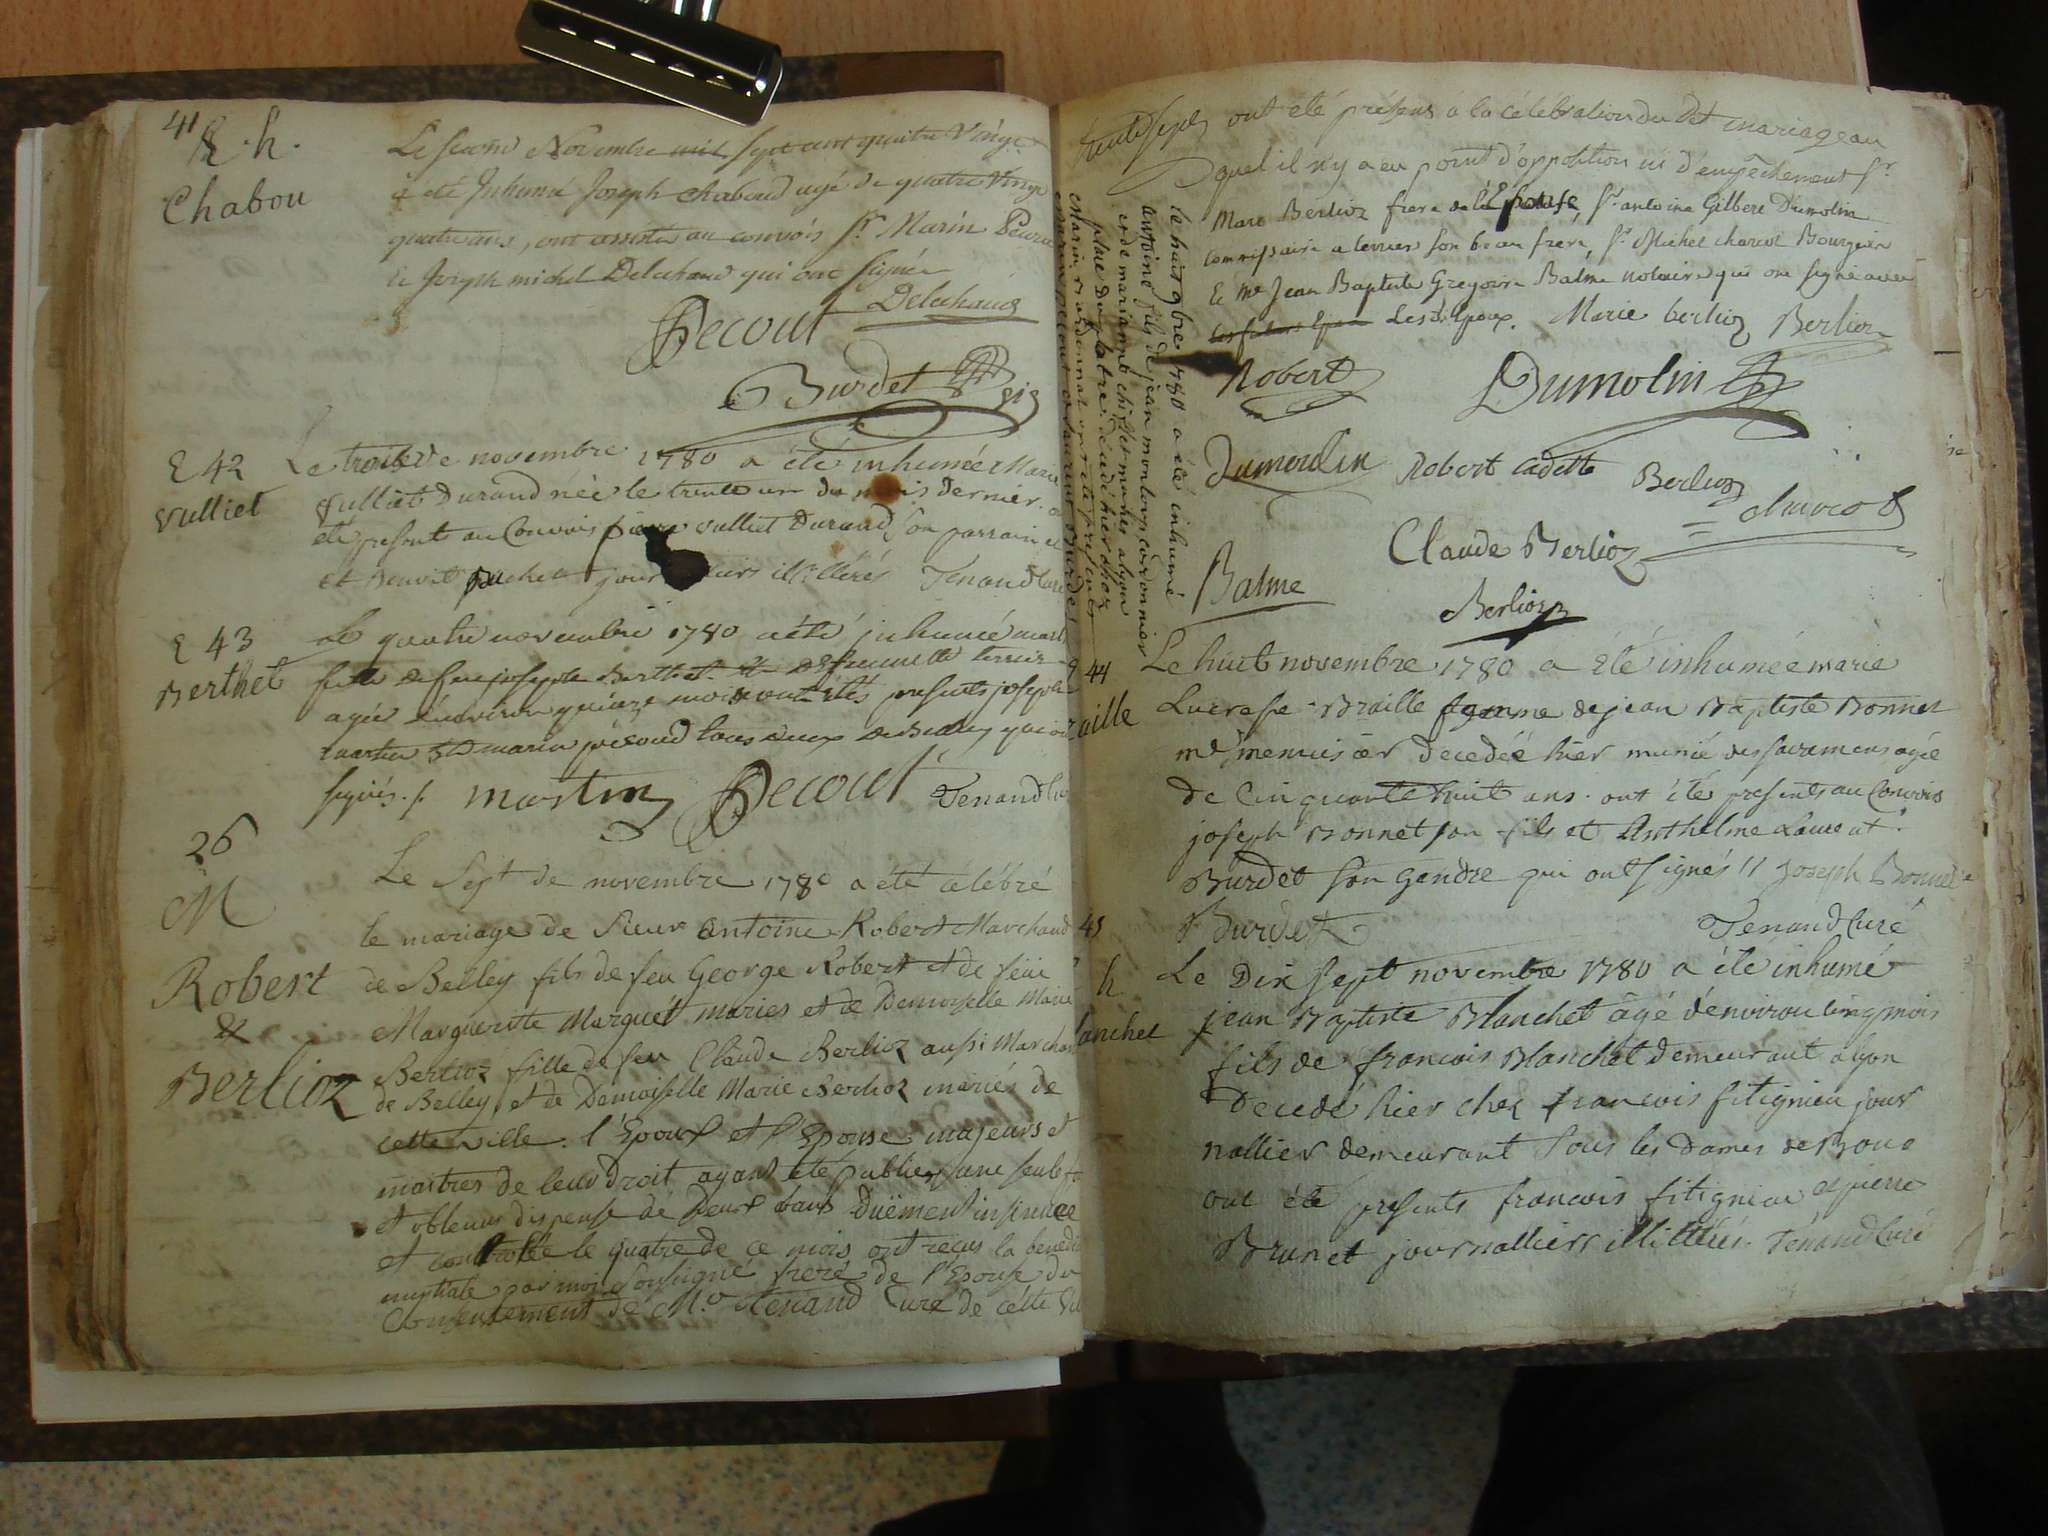 41
E. h.
Chabou
Le second Novembre mil sept cent quatre Vingt
a été Inhumé Joseph Chaboud agé de quatre Vingt
quatre ans, ont assisté au convois Sr. Marin Pecout
et Joseph michel Delachaud qui ont signé
Delachaud
Pecout
Burdet
E 42
Vulliet
Le trois de novembre 1780 a été inhumée Marie
Vulliet Durand née le trente un du mois dernier. ont
été presents au Convois pierre vulliet Durand son parrain et
et benoit jour illitérés Tenand Curé
E 43
Berthet
Le quatre novembre 1780 a été inhumé
fille de feu joseph Berthet
agée d'environ quinze mois ont étés presents joseph
martin et marin pecoud tous deux de Belley qui ont
signés ./. martin Pecout Tenand Curé
26
M
Robert
&
Berlioz
Le Sept de novembre 1780 a été célébré
le mariage de Sieur Antoine Robert Marchand
de Belley fils de feu George Robert et de feue
Marguerite Marquet mariés et de Demoiselle Marie
Berlioz fille de feu Claude Berlioz aussi Marchand
de Belley et de Demoiselle Marie Berlioz mariés de
cette ville. l'Epoux et l'Epouse majeurs et
maitres de leur droit ayant été publiés une seule fois
et obtenus dispense de deux bans Duëment insinuée
et controllée le quatre de ce mois ont reçus la benedi
nuptiale par moi soussigné frere de l'Epouse du
Consentement de Mr. Tenand Curé de cette Vil
ont été présens a la célébration du dit mariage au
quel il n'y a eu point d'opposition ni d'empêchement Sr.
Marc Berlioz frere de l'Epouse, Sr. antoine Gilbert Dumolin
Commissaire a terrier son beau frere, Sr. Michel charcot Bourgeois
et Me Jean Baptiste Gregoire Balme notaire qui ont signé avec
Lesdts. Epoux. Marie berlioz Berlioz
Robert Dumolin
Dumoulin Robert Cadette Berlioz
charcot
Claude Berlioz
Balme
Berlioz
le huit 9bre 1780 a été inhumé
antoine fils de jean montoux cordonnier
et de marianne chisset mariés a lyon
plus du platre décédé hier chez
44
aille
Le huit novembre 1780 a été inhumée marie
Lucresse Braille femme de jean Baptiste Bonnet
me. menuisier decedée hier munie des sacremens agée
de Cinquante huit ans. ont étés présents au Convois
joseph Bonnet son fils et Anthelme Laurent
Burdet son Gendre qui ont signés // Joseph Bonnet
Burdet Tenand Curé
45
h
lanchet
Le Dix sept novembre 1780 a été inhumé
jean Baptiste Blanchet âgé d'environ cinq mois
fils de francois Blanchet demeurant a lyon
Decedé hier chez francois fitignieu jour
nallier demeurant sous les Dames de Bons
ont été presents francois fitignieu et pierre
Brunet journalliers illittérés. Tenand Curé